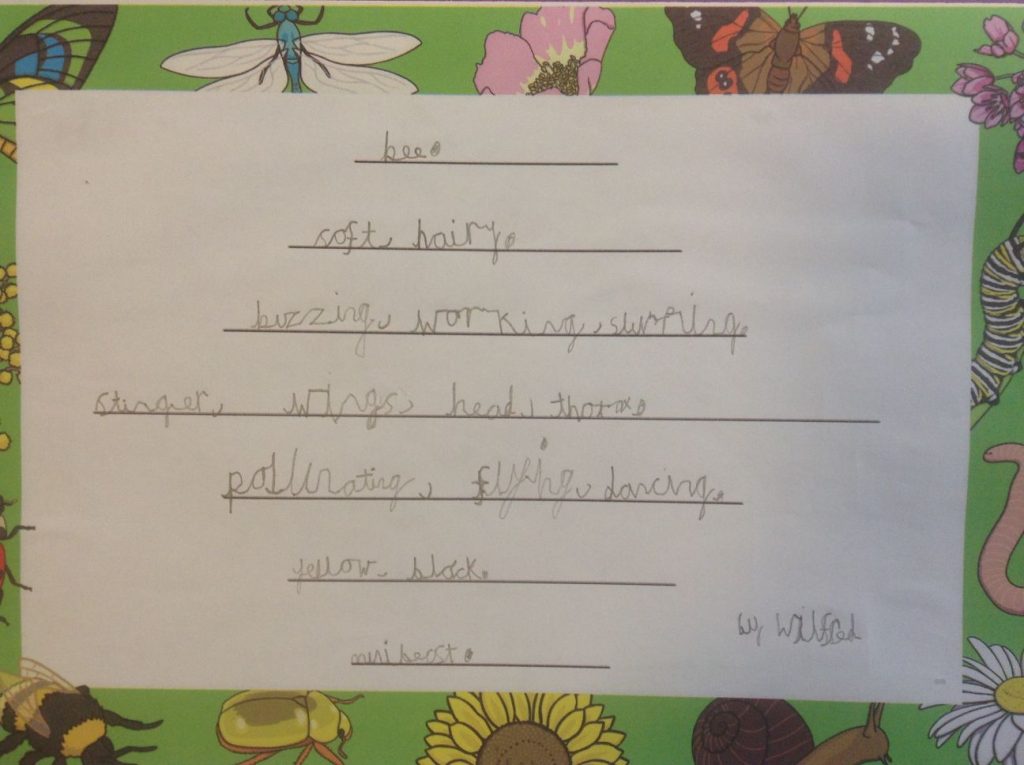 bee.
soft, hairy.
buzzing, working, slurping.
stinger, wings, head, thorax.
pollinating, flying, dancing.
yellow, black.
minibeast.
by Wilfred